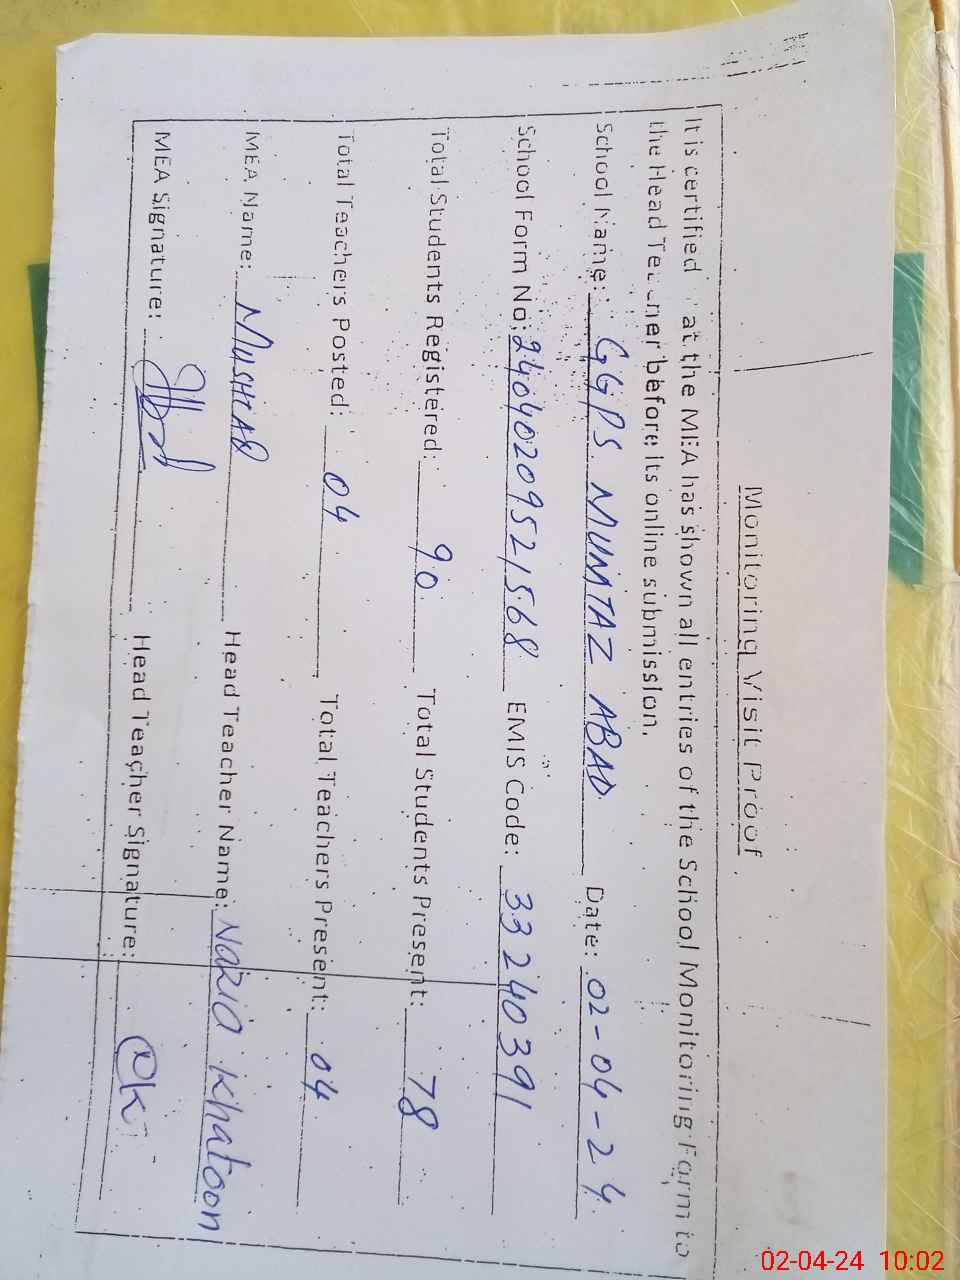 Monitoring Visit Proof
It is certified at the MEA has shown all entries of the School Monitoring Form to
the Head Teacher before its online submission.
School Name: GGPS MUMTAZ ABAD Date: 02-04-24
School Form No: 24040209521568 EMIS Code: 33240391
Total Students Registered: 90 Total Students Present: 78
Total Teachers Posted: 04 Total Teachers Present: 04
MEA Name: MUSHTAQ Head Teacher Name: Nazia Khatoon
MEA Signature: Head Teacher Signature:
02-04-24 10:02